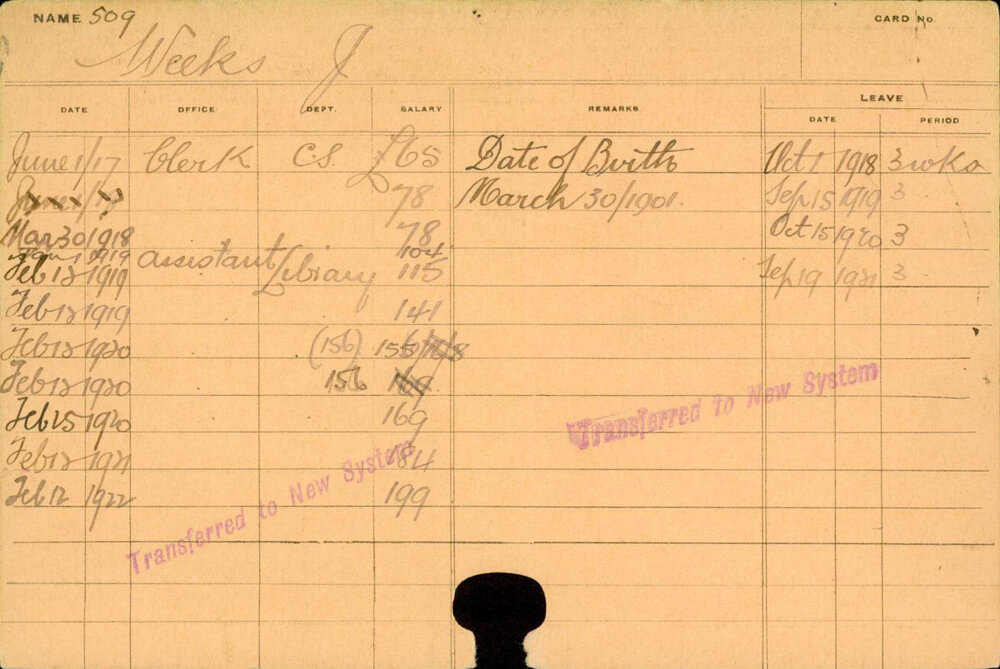 NAME 509 CARD No.
Weeks J
DATE OFFICE DEPT. SALARY REMARKS LEAVE
DATE PERIOD
June 1/17 Clerk C.S. £65 Date of Birth Oct 1 1918 3 wks
June 1/19 78 March 30/1901. Sep 15 1919 3
Mar 30 1918 78 Oct 15 1920 3
Jan 1 1919 assistant Library 104
Feb 12 1919 115 Sep 19 1921 3
Feb 12 1919 141
Feb 12 1920 (156) 155/
Feb 12 1920 156 169
Feb 25 1920 169
Feb 12 1921 184
Feb 12 1922 199
Transferred to New System
Transferred to New System